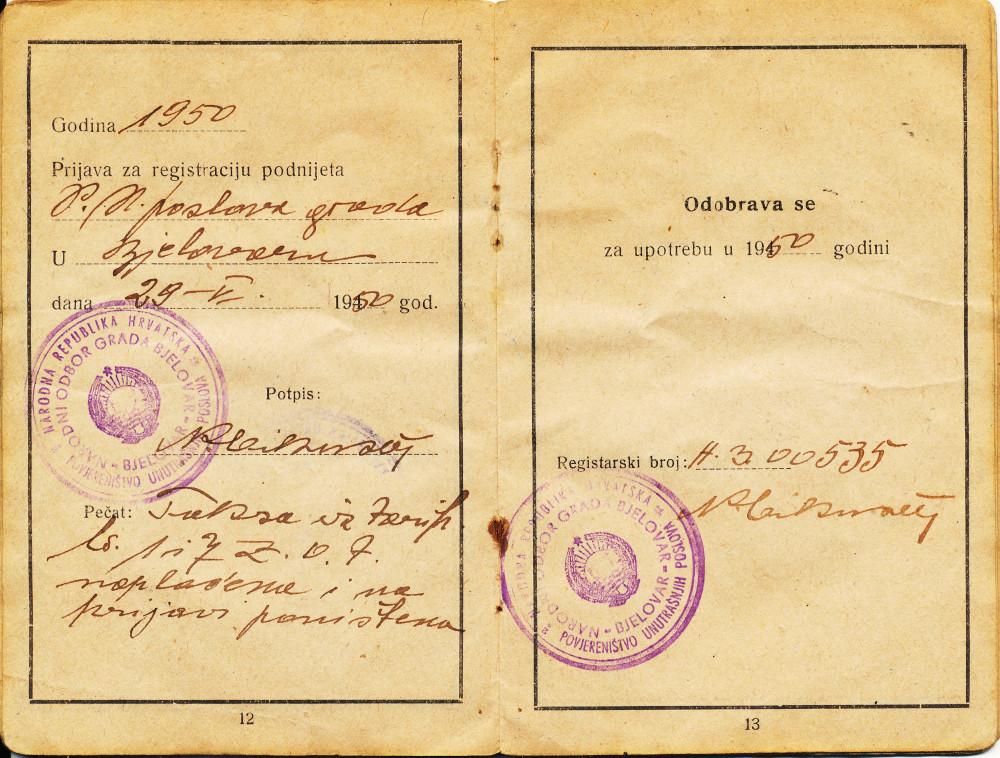 Godina 1950
Prijava za registraciju podnijeta
P. N. poslova grada
U Bjelovaru
dana 29-VI. 1950 god.
NARODNA REPUBLIKA HRVATSKA
NARODNI ODBOR GRADA BJELOVAR - BJELOVAR
POVJERENIŠTVO UNUTRAŠNJIH POSLOVA
Potpis:
Pečat: Taksa iz tarif.
br. 1 i 7 Z. o. T.
naplaćena i na
prijavi poništena
12
Odobrava se
za upotrebu u 1950 godini
Registarski broj: H. 3. 00535
NARODNA REPUBLIKA HRVATSKA
NARODNI ODBOR GRADA BJELOVAR - BJELOVAR
POVJERENIŠTVO UNUTRAŠNJIH POSLOVA
13